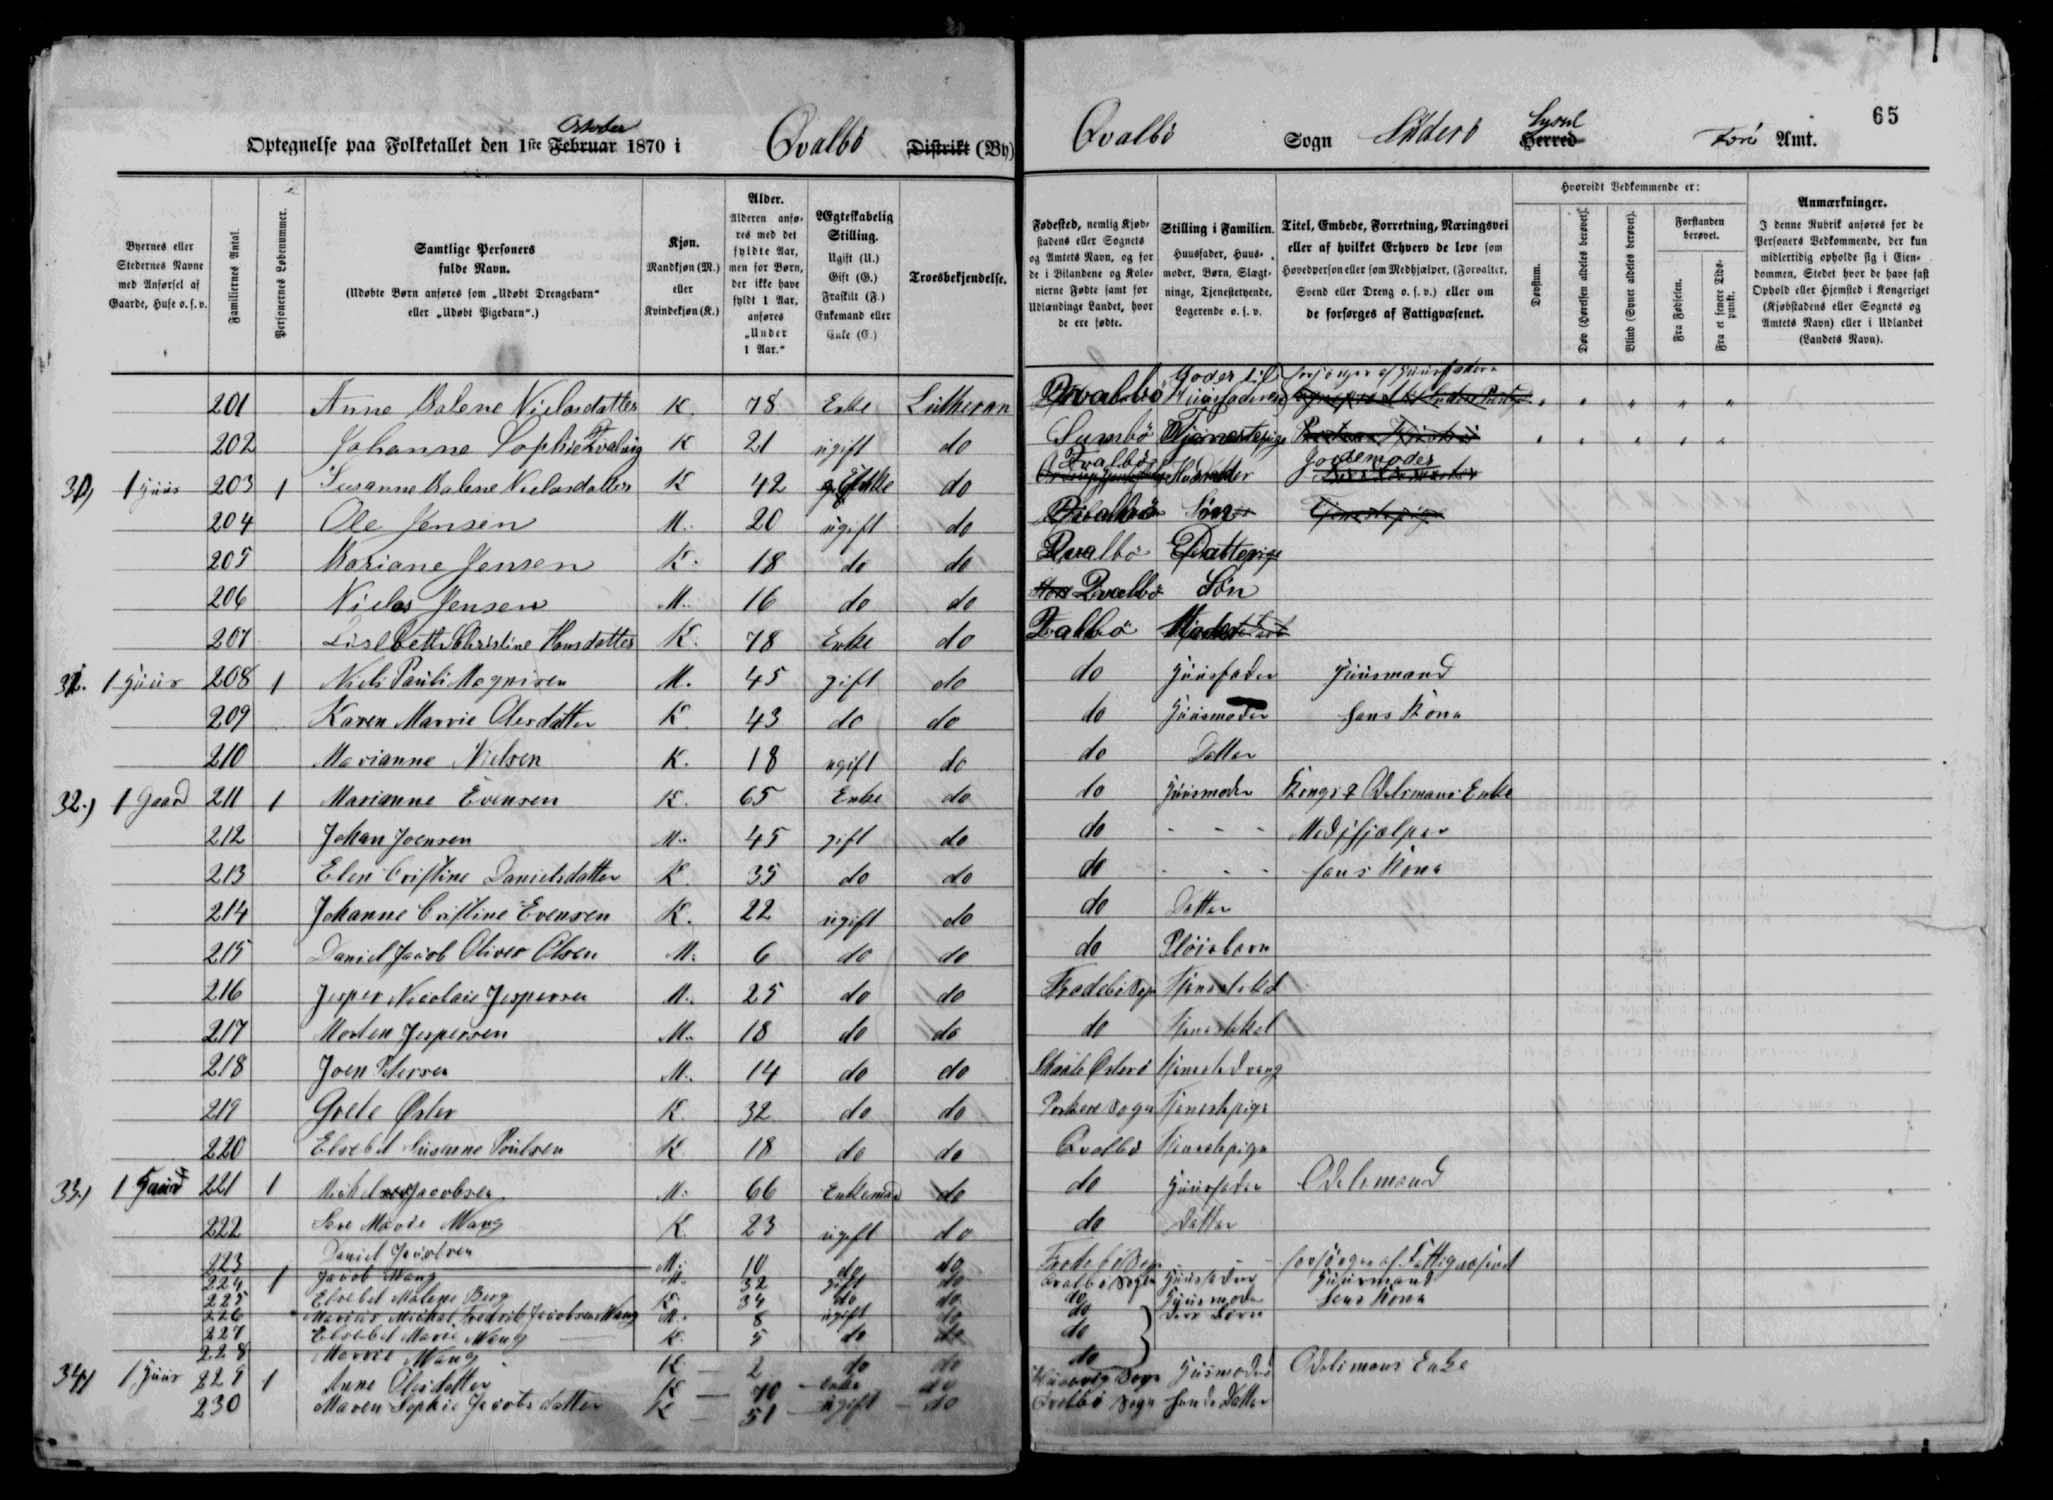 65
Optegnelse paa Folketallet den 1ste Februar October 1870 i Qvalbö Distrikt (By)
Qvalbö Sogn Suderö Herred Sysel Færö Amt.
Byernes eller Stedernes Navne med Anførsel af Gaarde, Huse o. s. v.
Familiernes Antal.
Personernes Løbenummer.
Samtlige Personers fulde Navn.
(Udøbte Børn anføres som „Udøbt Drengebarn“ eller „Udøbt Pigebarn“.)
Kjøn.
Mandkjøn (M.) eller Kvindekjøn (K.)
Alder.
Alderen anføres med det fyldte Aar, men for Børn, der ikke have fyldt 1 Aar, anføres „Under 1 Aar.“
Ægteskabelig Stilling.
Ugift (U.)
Gift (G.)
Fraskilt (F.)
Enkemand eller Enke (E.)
Troesbekjendelse.
Fødested, nemlig Kjøbstadens eller Sognets og Amtets Navn, og for de i Bilandene og Kolonierne Fødte samt for Udlændinge Landet, hvor de ere fødte.
Stilling i Familien.
Huusfader, Huusmoder, Børn, Slægtninge, Tjenestetyende, Logerende o. s. v.
Titel, Embede, Forretning, Næringsvei eller af hvilket Erhverv de leve som Hovedperson eller som Medhjælper, (Forvalter, Svend eller Dreng o. s. v.) eller om de forsørges af Fattigvæsenet.
Hvorvidt Vedkommende er:
Døvstum.
Døv (Hørelsen aldeles berøvet).
Blind (Synet aldeles berøvet).
Forstanden berøvet.
Fra Fødselen.
Fra et senere Tidspunkt.
Anmærkninger.
I denne Rubrik anføres for de Personers Vedkommende, der kun midlertidig opholde sig i Eiendommen, Stedet hvor de have fast Ophold eller Hjemsted i Kongeriget (Kjøbstadens eller Sognets og Amtets Navn) eller i Udlandet (Landets Navn).
201 Anne Malene Nielsdatter K. 78 Enke Lutheran Qvalbö Moder til Huusfaderen forsörges af Huusfaderen
202 Johanne Sophie K 21 ugift do Sumbö Tjenestepige
1 Huus 203 1 Susanne Malene Nielsdatter K 42 Enke do Qvalbö Huusmoder Jordemoder
204 Ole Jensen M. 20 ugift do Qvalbö Sön
205 Mariane Jensen K. 18 do do Qvalbö Datter
206 Niels Jensen M. 16 do do Qvalbö Sön
207 Lisebeth Christine Hansdatter K. 78 Enke do Qvalbö Moder
1 Huus 208 1 Niels Pauli Magnisen M. 45 gift do do Huusfader Huusmand
209 Karen Marrie Olesdatter K. 43 do do do Huusmoder hans Kone
210 Marianne Nielsen K. 18 ugift do do Datter
32.) 1 Gaard 211 1 Marianne Evensen K. 65 Enke do do Huusmoder Kongs & Odelsmans Enke
212 Johan Joensen M. 45 gift do do - - - Medhjælper
213 Elen Cristine Danielsdatter K. 35 do do do - - - hans Kone
214 Johanne Cristine Evensen K. 22 ugift do do Datter
215 Daniel Jacob Oliver Olsen M. 6 do do do Pleiebarn
216 Jesper Nicolaie Jespersen M. 25 do do Frodebö Sogn Tjenestekarl
217 Morten Jespersen M. 18 do do do Tjenestekarl
218 Joen Petersen M. 14 do do Österö Tjenestedreng
219 Grete Öster K. 32 do do Porkere Sogn Tjenestepige
220 Elsebet Susanne Poulsen K. 18 do do Qvalbö Tjenestepige
33.) 1 Gaard 221 1 Mikkel Jacobsen M. 66 Enkemand do do Huusfader Odelsmand
222 Marie Wang K. 23 ugift do do Datter
223 Daniel Jacobsen M. 10 do do Frodebö Sogn - - forsörges af Fattigvæsenet
224 1 Jacob Wang M. 32 gift do Qvalbö Sogn Huusfader Huusmand
225 Elsebet Malene Berg K. 34 do do do Huusmoder hans Kone
226 Marius Mickal Fredrik Jacobsen Wang M. 8 ugift do do deres Börn
227 Elsebet Marie Wang K. 5 do do do
228 Marrie Wang K. 2 do do do
34.) 1 Huus 229 1 Anne Olesdatter K 70 Enke do Sogn Huusmoder Odelsmans Enke
230 Maren Sophie Jacobsdatter K 51 ugift do Qvalbö Sogn hendes Datter